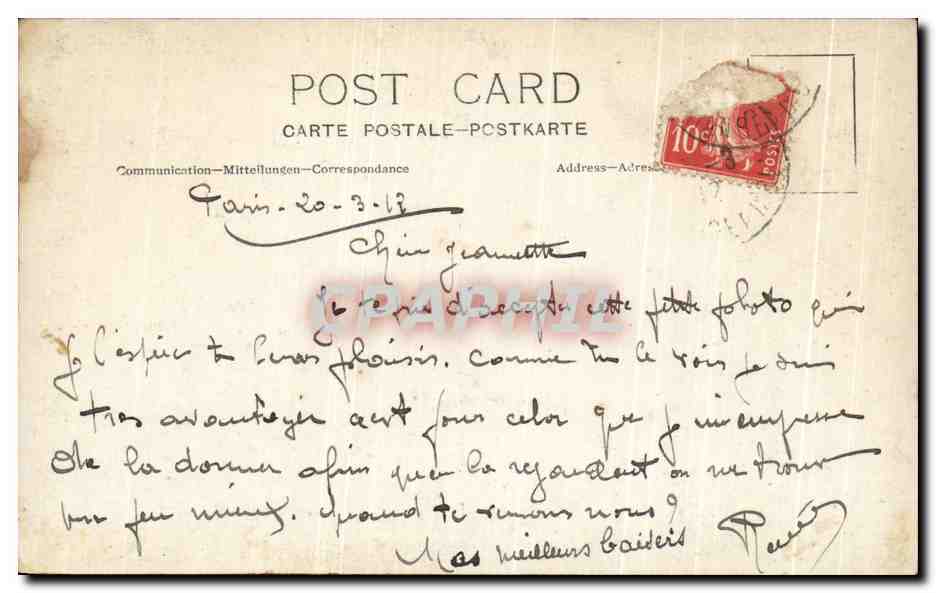 POST CARD
CARTE POSTALE—POSTKARTE
Communication—Mitteilungen—Correspondance
Address—Adres
10c
POSTES
Paris - 20 - 3 - 17
Jeannette
Je te prie d'accepter cette petite photo qui
je l'espère te plaisir. comme tu le vois je suis
tres avantager c'est pour celor que je m'empresse
de la donner afin que la regardant on me trouve
un peu mieux. quand te nous?
Mes meilleurs baisers René
CPAPHIL